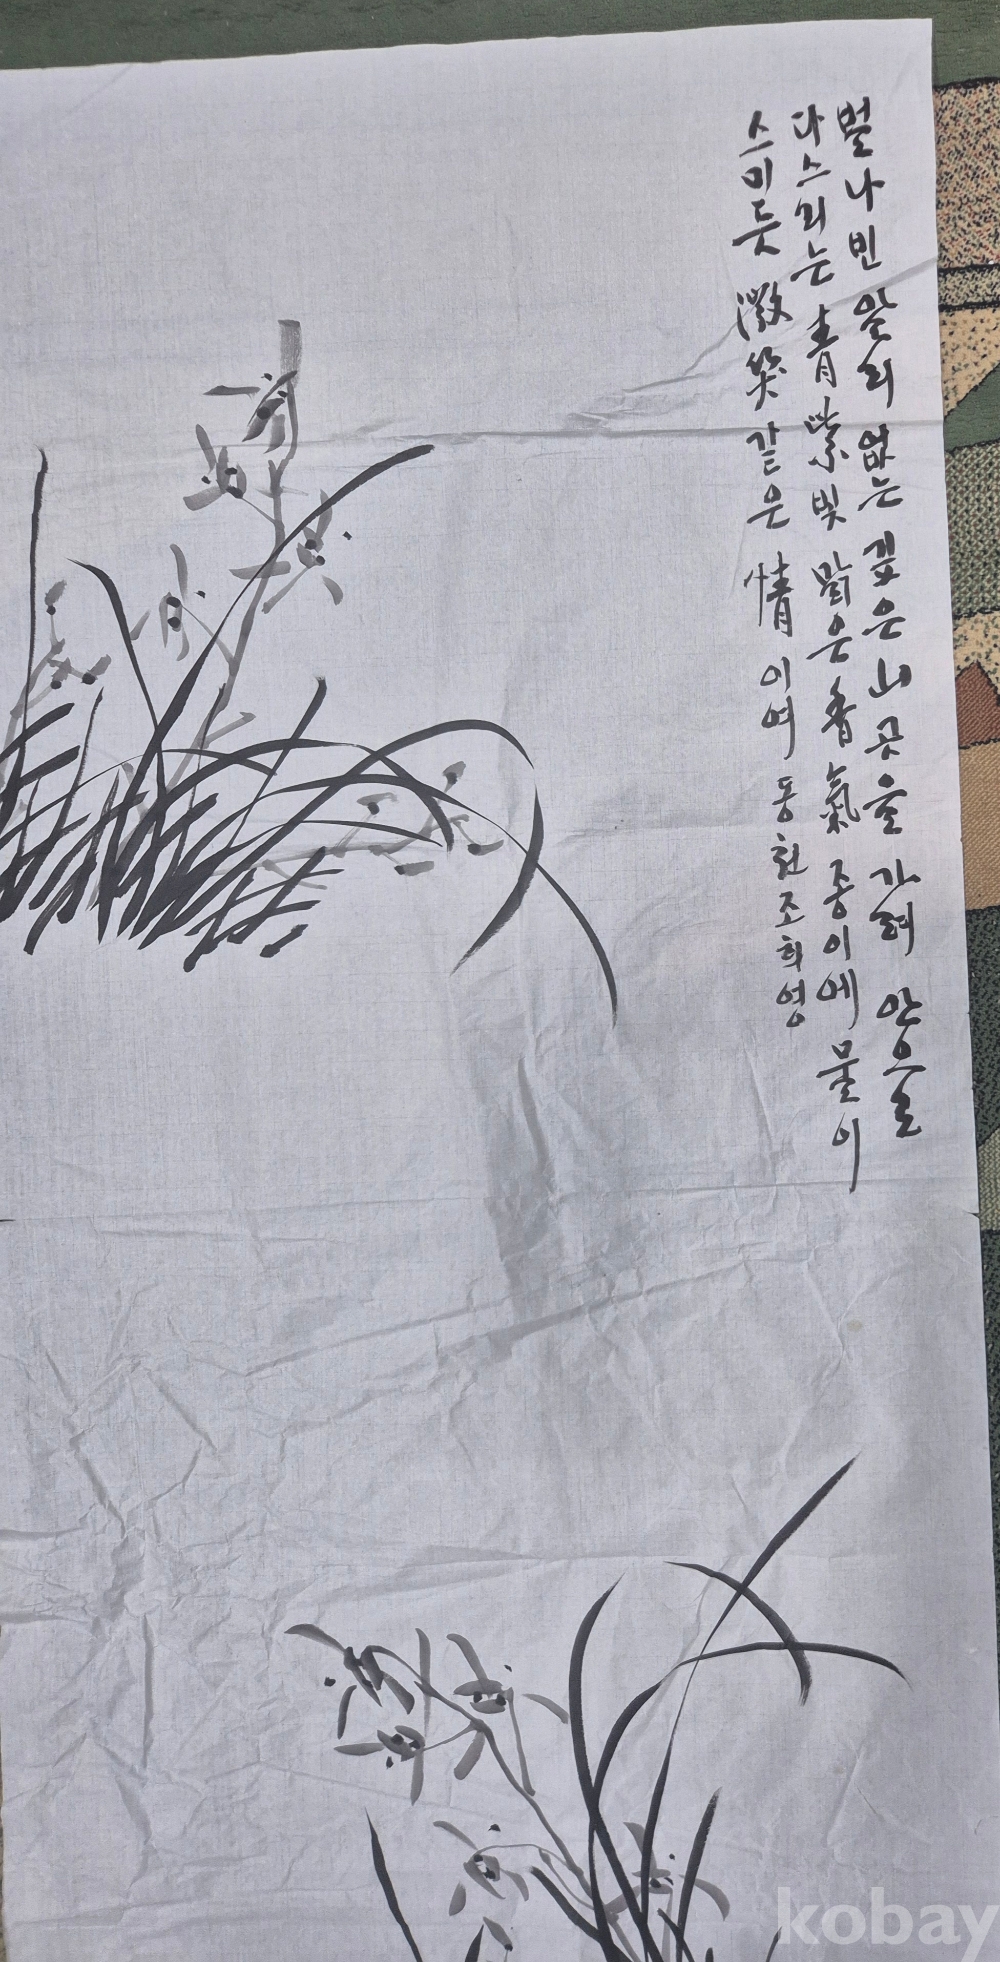 벌 나빈 알리 없는 깊은 山곳을 가려 안으로
다스리는 青紫빛 맑은 香氣 종이에 물이
스미듯 微笑 같은 情이여 동천 조희영
kobay